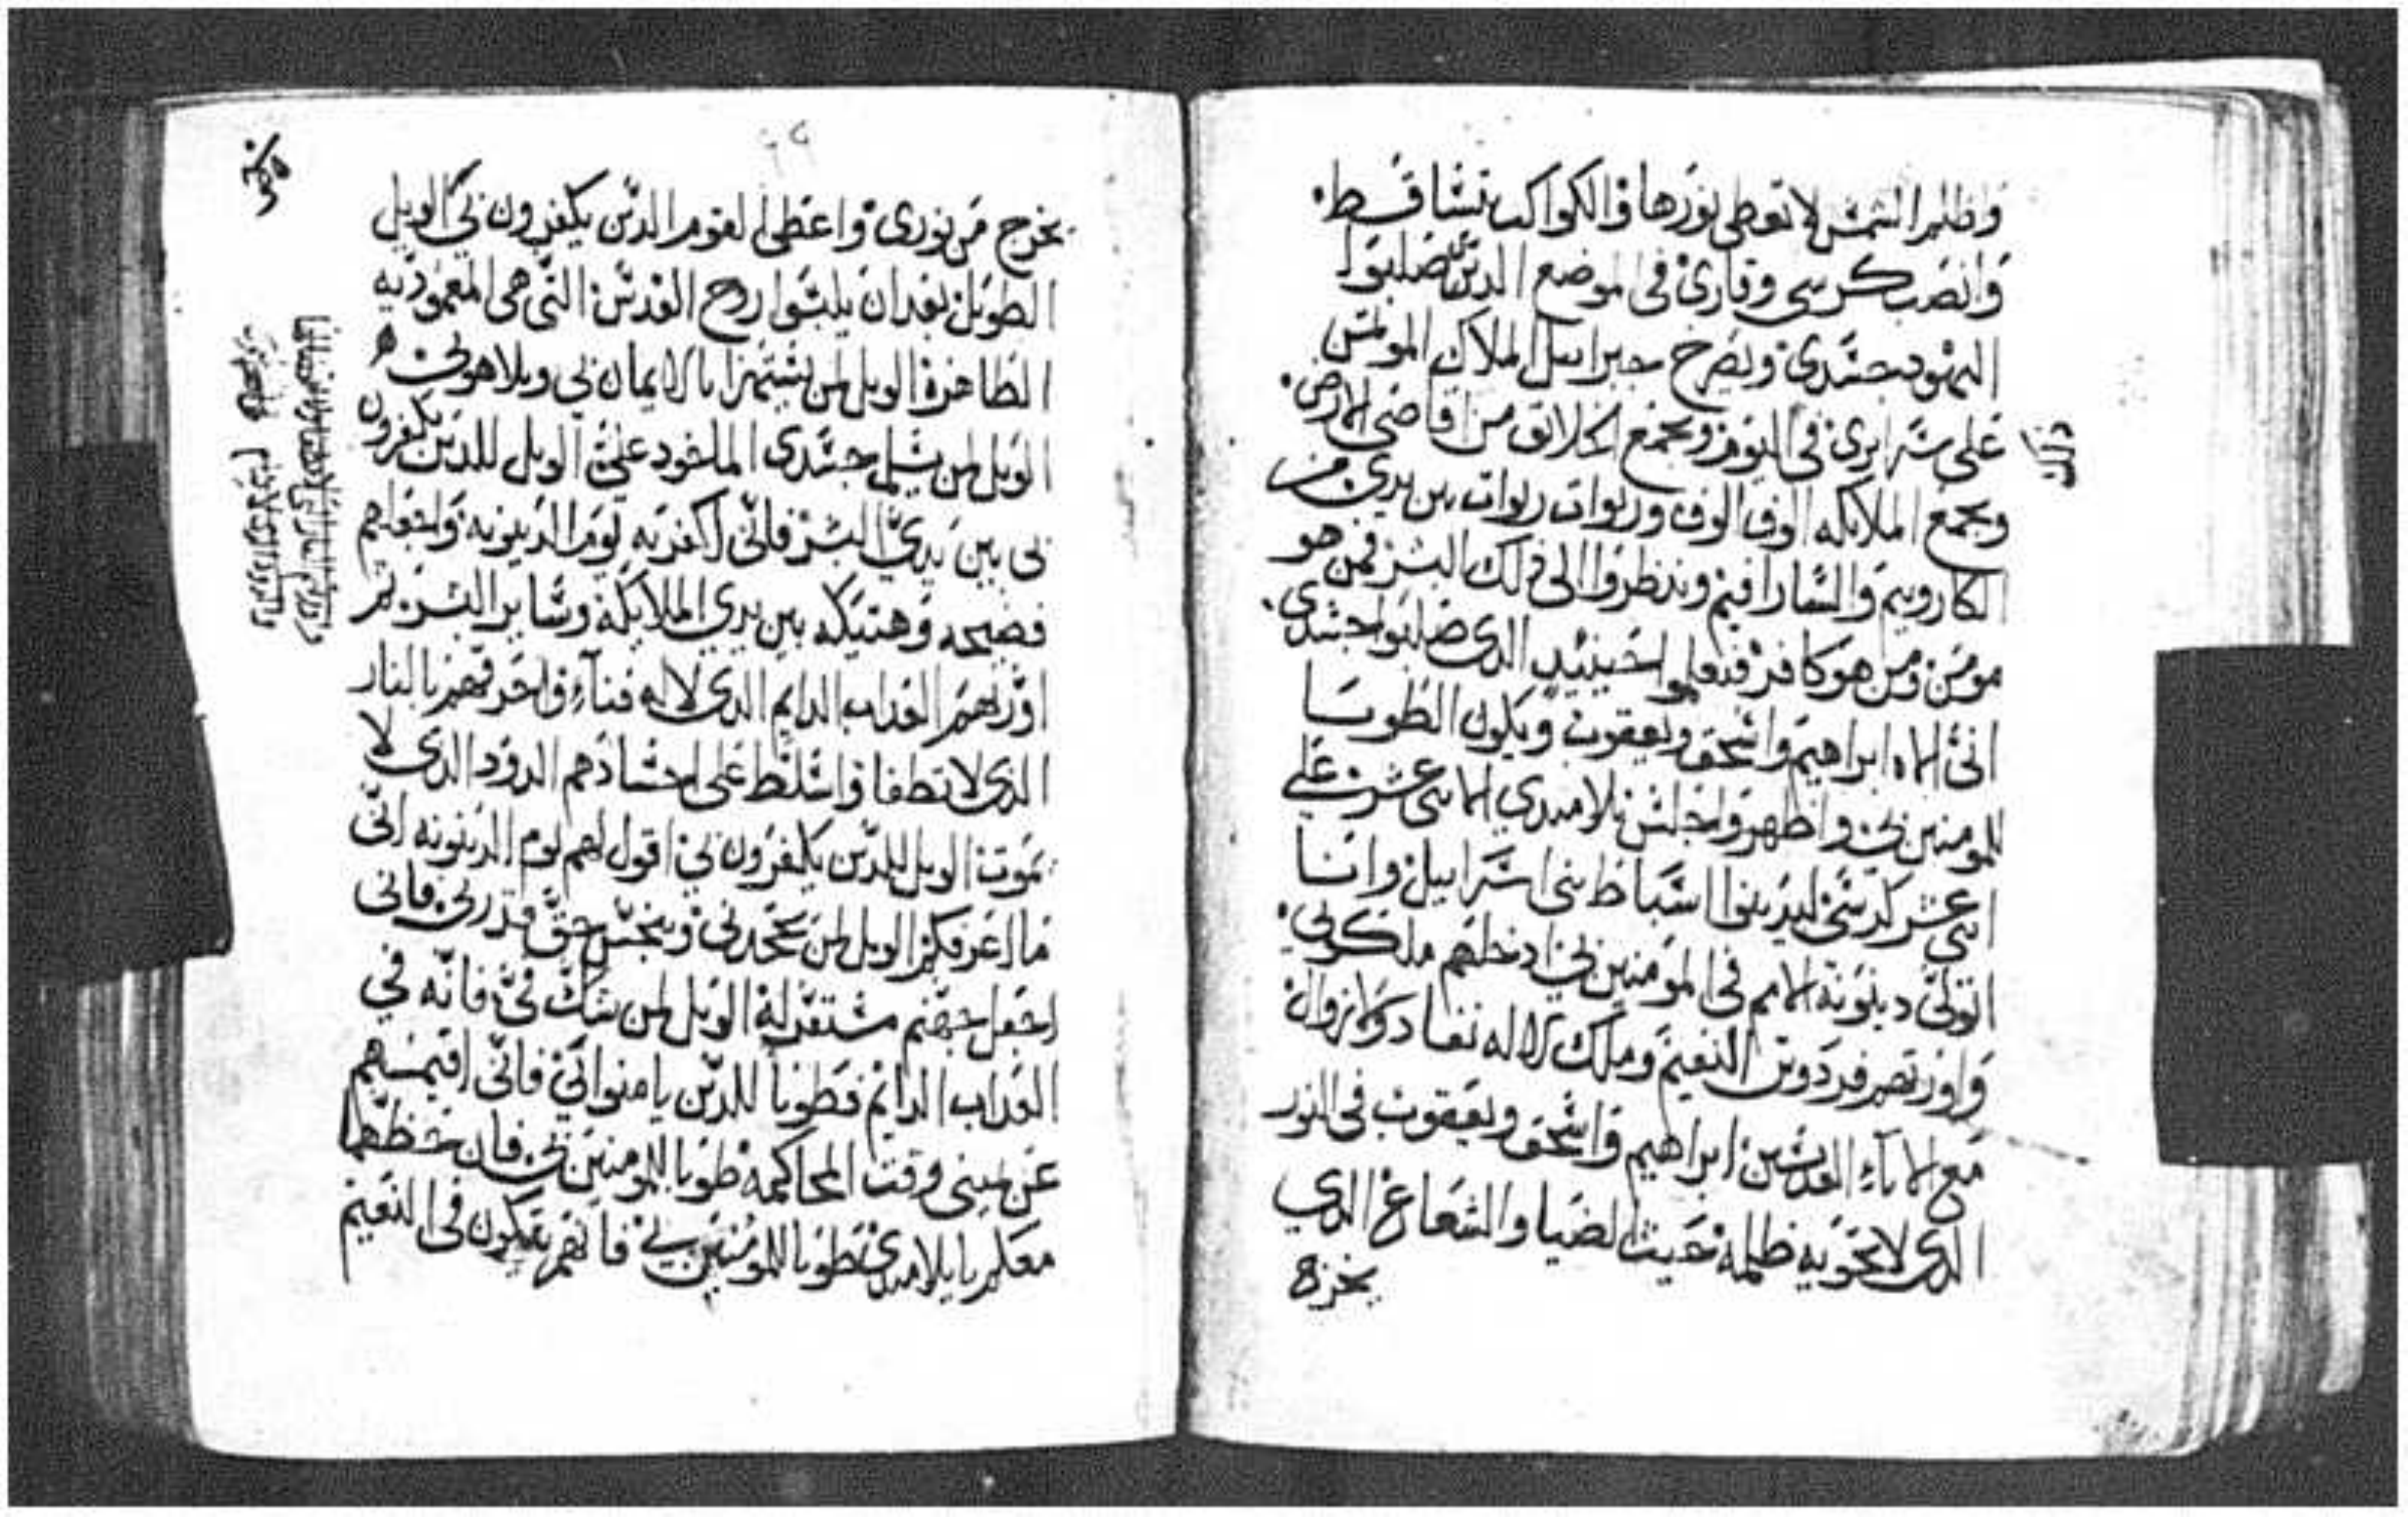 وظلم الشمش لا تعطي نورها والكواكب تشاقط.
وانصب كرسي وقاري في الموضع الدين صلبوا
اليهود جشدي ويصرخ جبراييل الملاك الموتمن
على شرايري في البوق ويجمع الخلائق من اقاصي الارض.
ويجمع الملايكه الوف الوف وربوات ربوات بين يدي من
الكاروبيم والشارافيم وينظروا الى ذلك البشر فمن هو
مومن ومن هو كافر فيعلموا حينيد الدي صلبوا جشدي.
انني الاه ابراهيم واشحق ويعقوب ويكون الطوبا
للمومنين بي واظهر واجلش تلاميدي الاتني عشر علي
اتني عشر كرشي ليدينوا اشباط بني اشراييل وانا
اتولي دينونة الامم في المومنين بي ادخلهم ملكوتي.
واورتهم فردوش النعيم وملك لا له نفاد ولا زوال
مع الاباء القدشين ابراهيم واشحق ويعقوب في النور
الدي لا تحويه ظلمه حيت الضيا والشعاع الدي
يخرج
يخرج من نوري واعطي لقوم الدين يكفرون بي الويل
الطويل بعد ان يلبشوا روح القدش التي هي المعموديه
الطاهرة الويل لمن يشتهزا بالايمان بي وبلاهوتي
الويل لمن شلم جشدي الماخود علي الويل للدين يكفرون
بي بين يدي البشر فاني اكفر به يوم الدينونه واجعلهم
فضيحه وهتيكه بين يدي الملايكة وشاير البشر تم
اورتهم العداب الدايم الدي لا له فناء واحرقهم بالنار
الدي لا تطفا واشلط على اجشادهم الدود الدي لا
يموت الويل للدين يكفرون بي اقول لهم يوم الدينونه اني
ما اعرفكم الويل لمن يجحدني ويبخش حق قدري فاني
اجعل جهنم مشتقر له الويل لمن شك في فانه في
العداب الدايم فطوبا للدين يامنوا بي فاني اقيمهم
عن يميني وقت المحاكمه طوبا للمومنين بي فان حظهم
معكم يا تلاميدي طوبا للمومنين بي فانهم يكون في النعيم